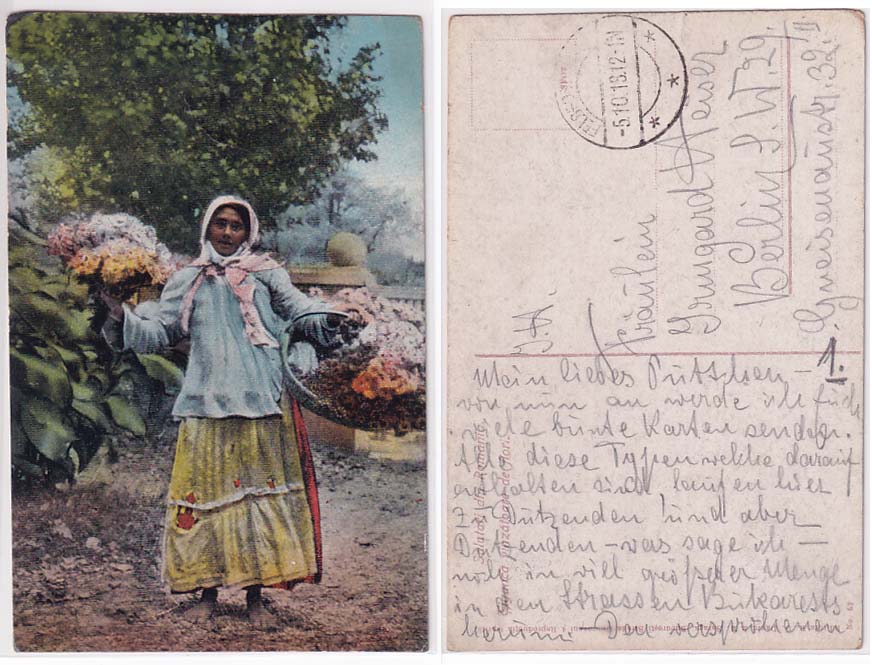 -5.10.18.12-1N
Fräulein
Irmgard Heiser
Berlin S.W. 29.
Gneisenaustr. 32 II
1.
Mein liebes Putschen –
von nun an werde ich Euch
viele bunte Karten senden.
Alle diese Typen welche darauf
enthalten sind, laufen hier
zu Dutzenden, und aber
Dutzenden – was sage ich –
noch in viel größerer Menge
in den Strassen Bukarests
herum. Den versprochenen
Salutări din România.